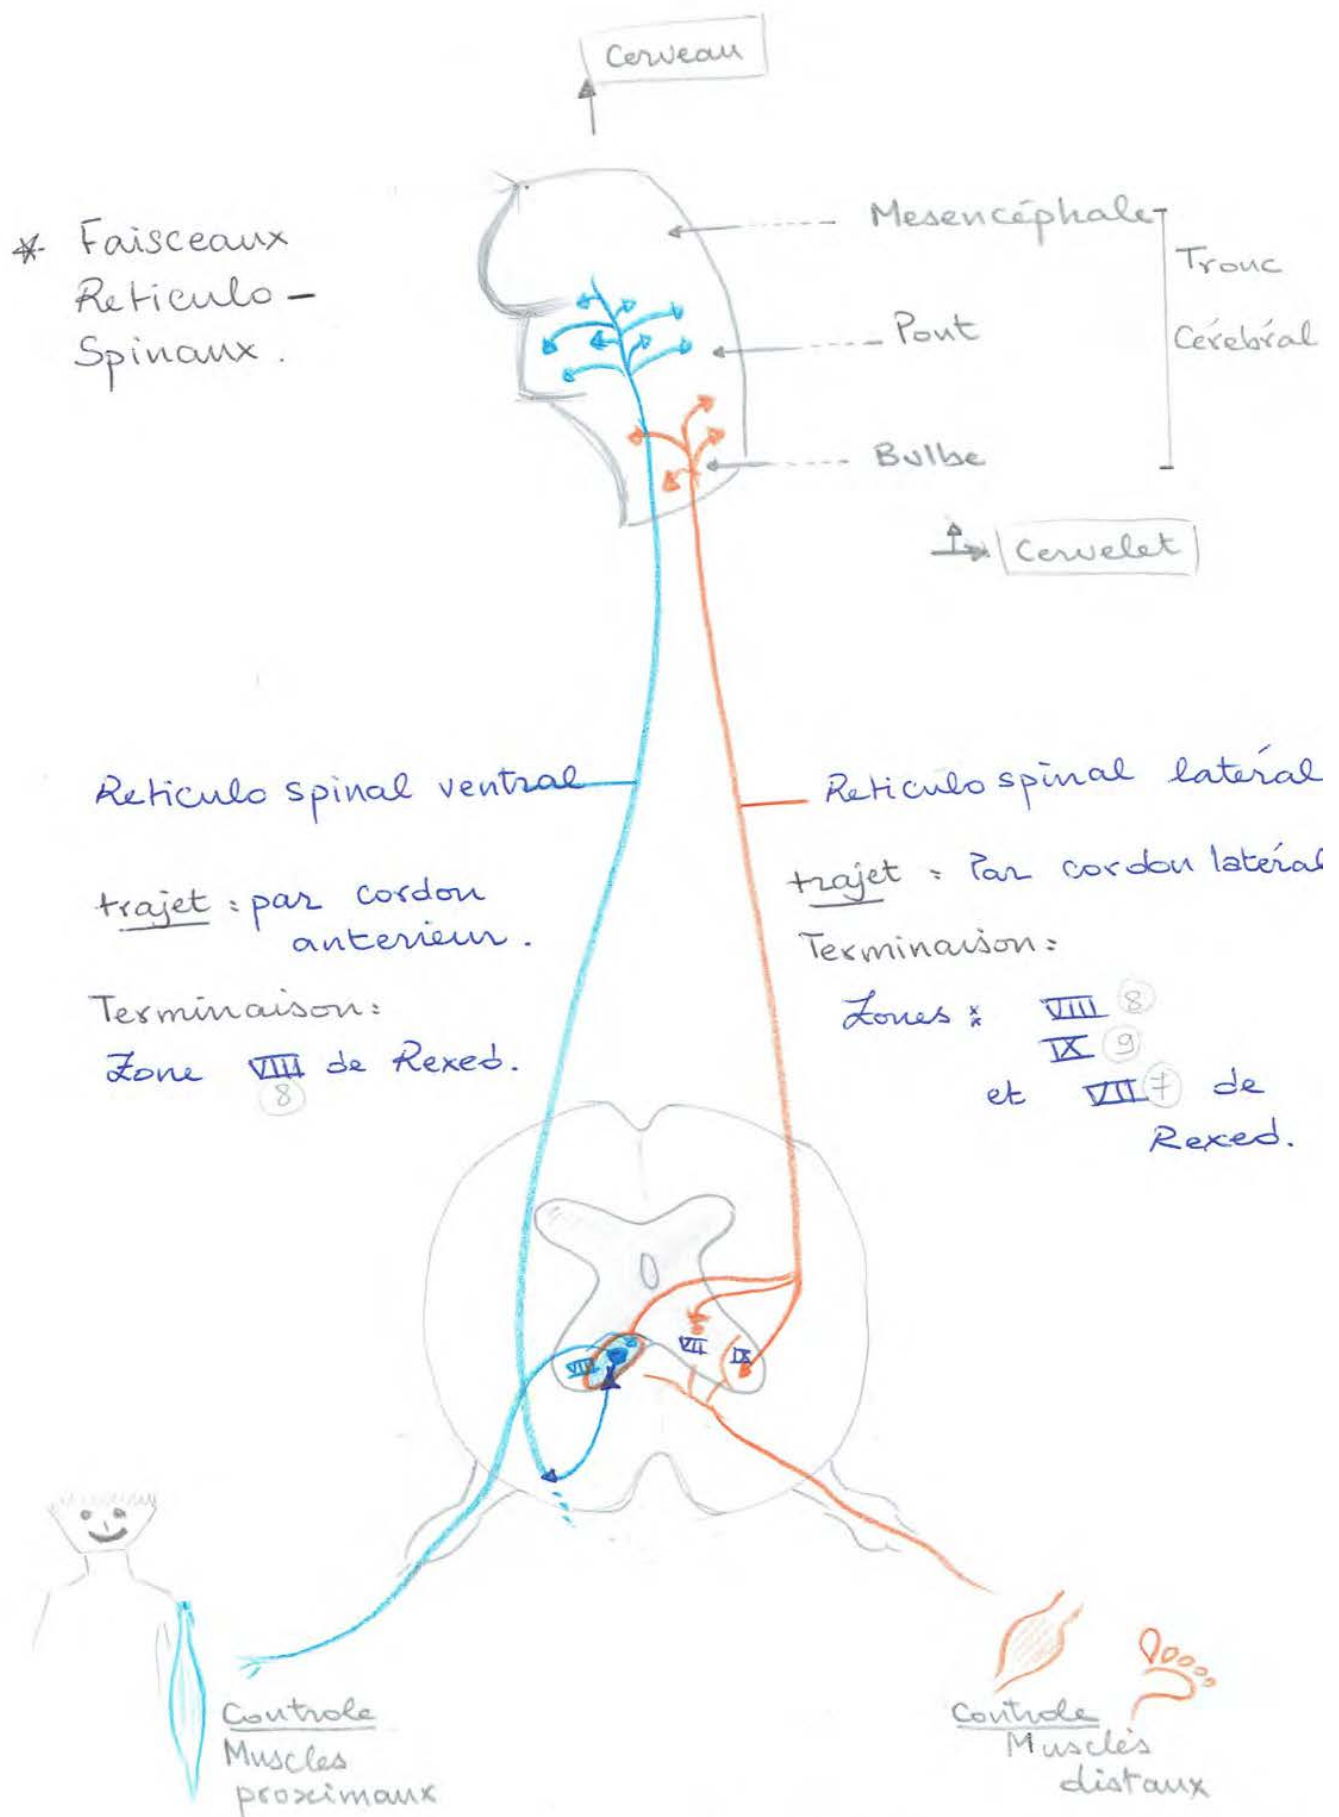 Cerveau
* Faisceaux
Reticulo-
Spinaux.
Mesencéphale
Tronc
Cérébral
Pont
Bulbe
Cervelet
Reticulo spinal ventral
trajet : par cordon
anterieur.
Terminaison:
Zone VIII de Rexed.
8
Reticulo spinal latéral
trajet : Par cordon latéral
Terminaison:
Zones : VIII 8
IX 9
et VII 7 de
Rexed.
VIII
VII
IX
Controle
Muscles
proximaux
Controle
Muscles
distaux